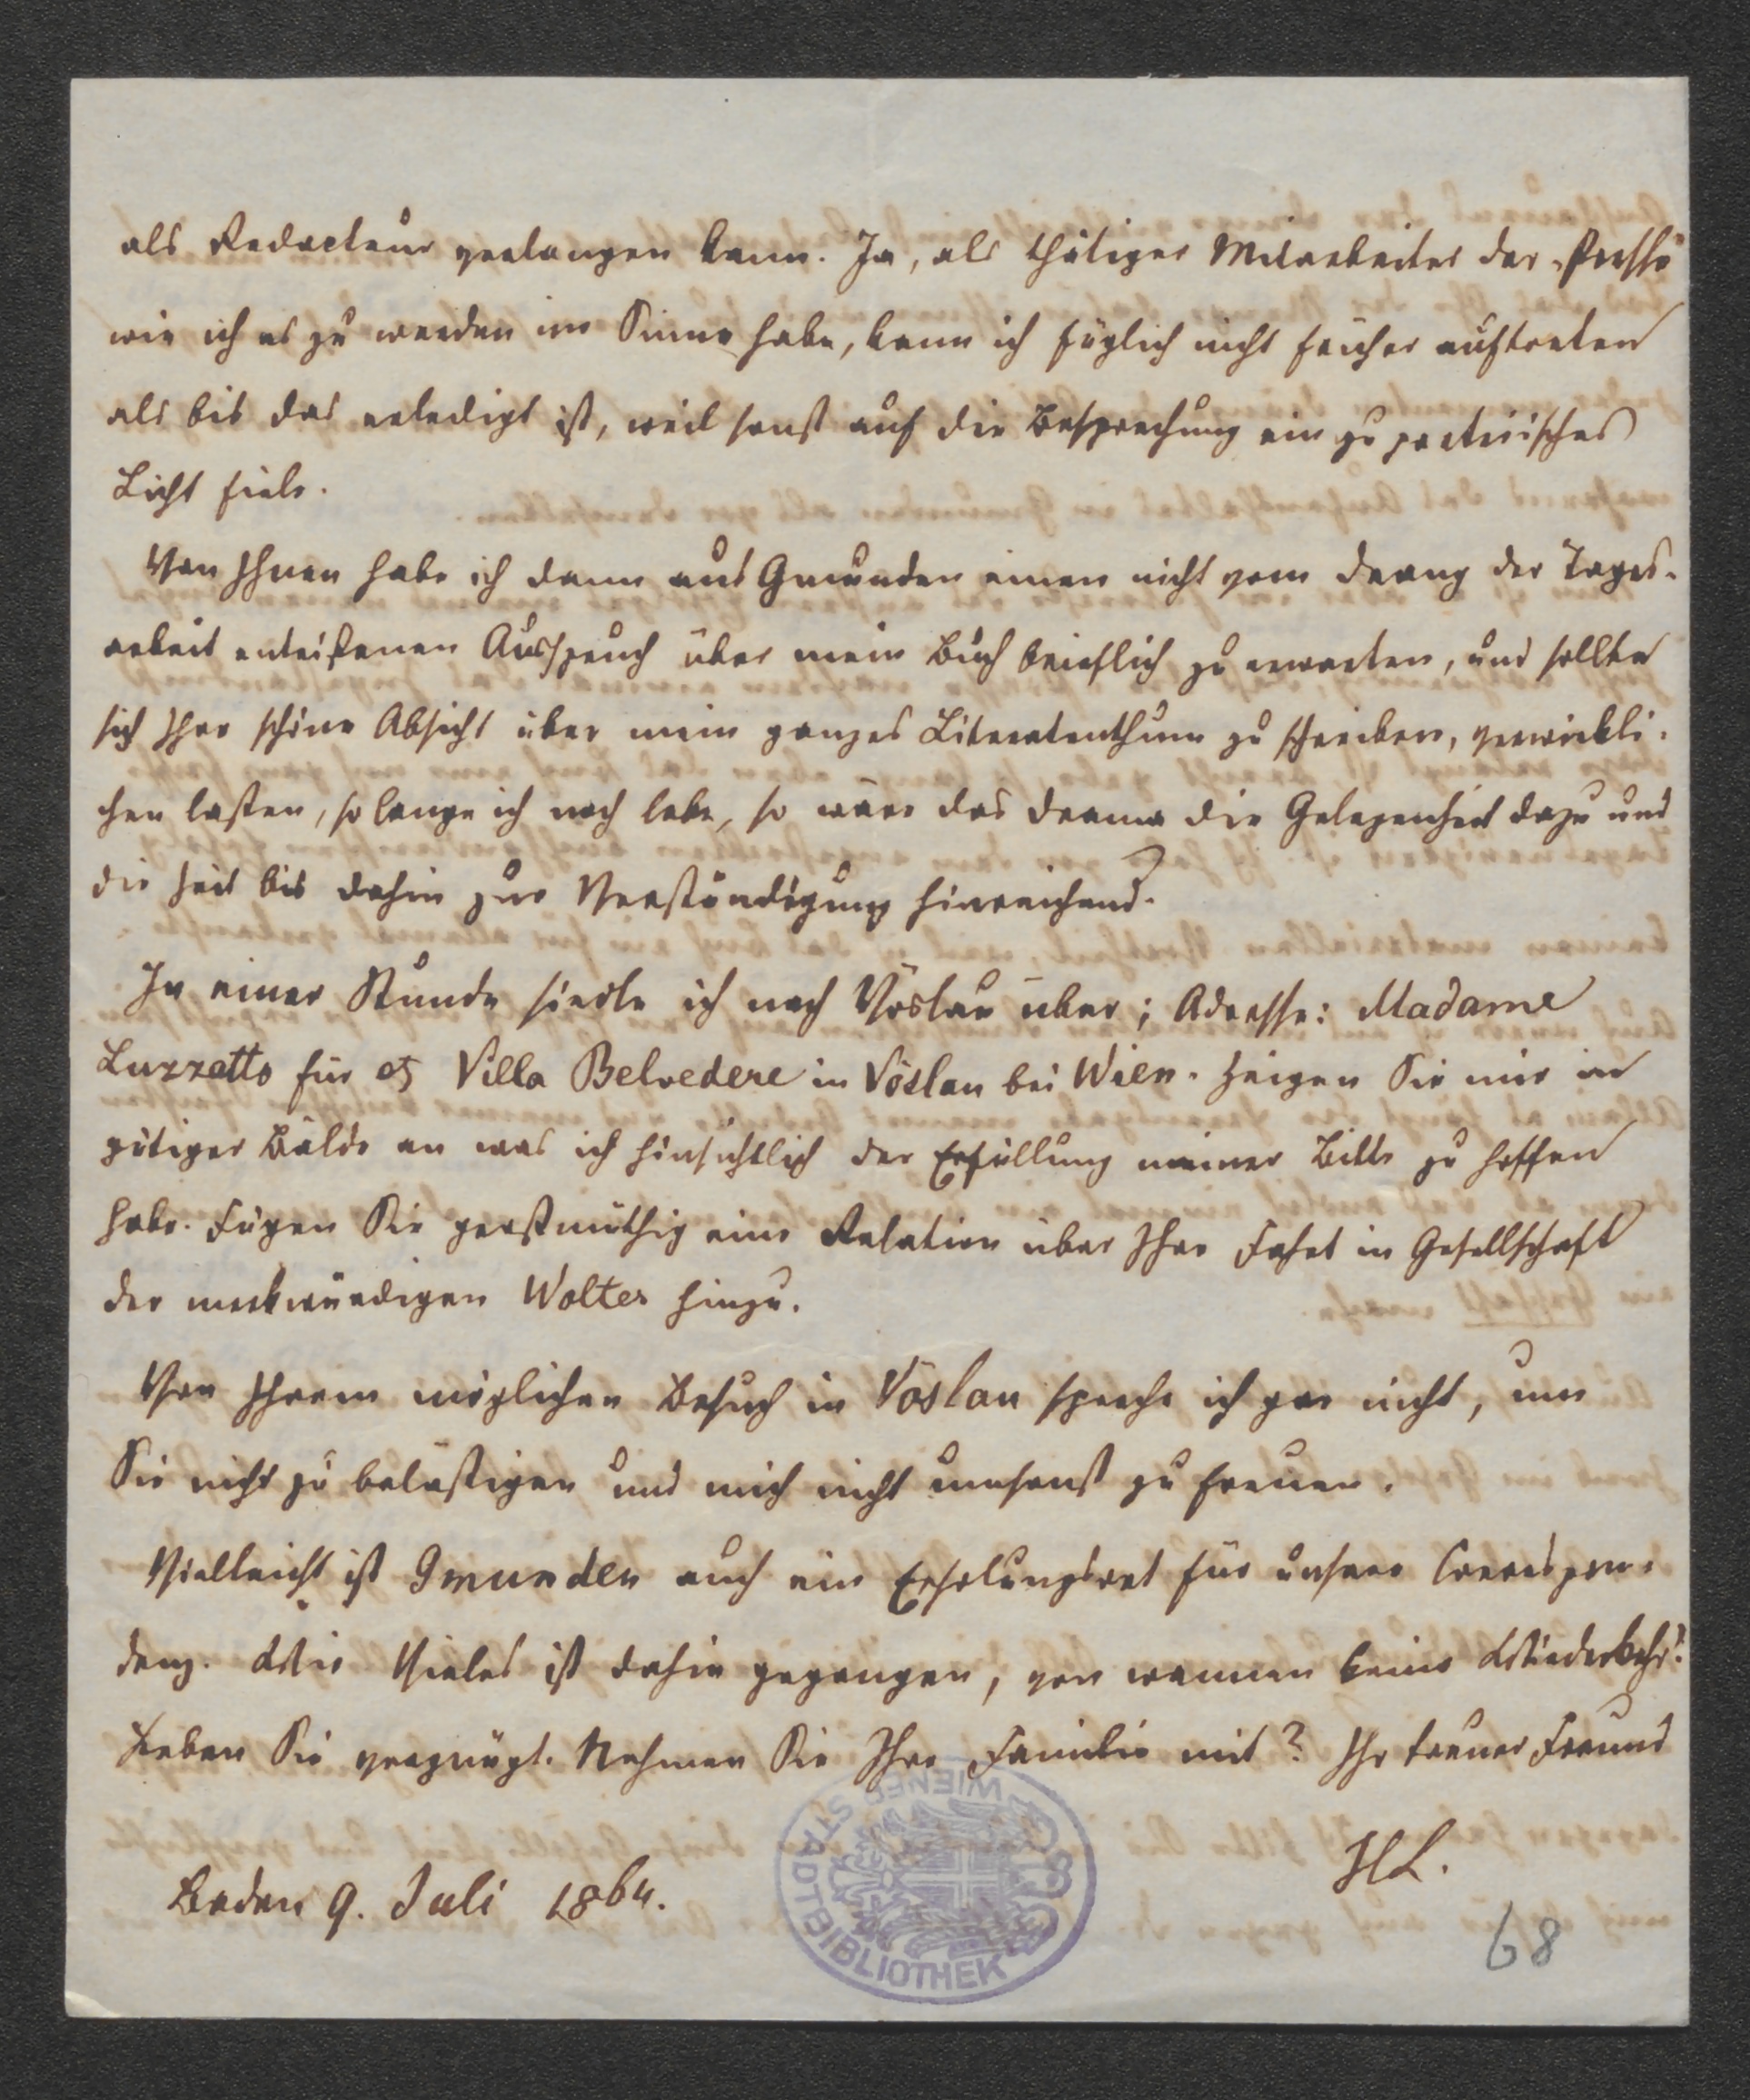 als Redacteur verlangen kann. Ja, als thätiger Mitarbeiter der „Presse“
wie ich es zu werden im Sinne habe, kann ich füglich nicht früher auftreten
als bis das erledigt ist, weil sonst auf die Besprechung ein zu parteiisches
Licht fiele.
Von Ihnen habe ich dann aus Gmunden einen nicht vom Drang der Tages-
arbeit entrißenen Ausspruch über mein Buch brieflich zu erwarten, und sollte
sich Ihre schöne Absicht über mein ganzes Literatenthum zu schreiben, verwirkli-
chen laßen, so lange ich noch lebe, so wäre das Drama die Gelegenheit dazu und
die Zeit bis dahin zur Verständigung hinreichend.
In einer Stunde siedle ich nach Vöslau über; Adresse: Madame
Luzzatto für Villa Belvedere in Vöslau bei Wien. Zeigen Sie mir in
gütiger Bälde an was ich hinsichtlich der Erfüllung meiner Bitte zu hoffen
habe. Fügen Sie großmüthig eine Relation über Ihre Fahrt in Gesellschaft
der merkwürdigen Wolter hinzu.
Von Ihrem möglichen Besuch in Vöslau spreche ich gar nicht, um
Sie nicht zu belästigen und mich nicht umsonst zu freuen.
Vielleicht ist Gmunden auch ein Erholungsort für unsere Correspon-
denz. Wie Vieles ist dahin gegangen, von wannen keine Wiederkehr!
Leben Sie vergnügt. Nehmen Sie Ihre Familie mit? Ihr treuer Freund
HL.
Baden 9. Juli 1864.
WIENER STADTBIBLIOTHEK
68